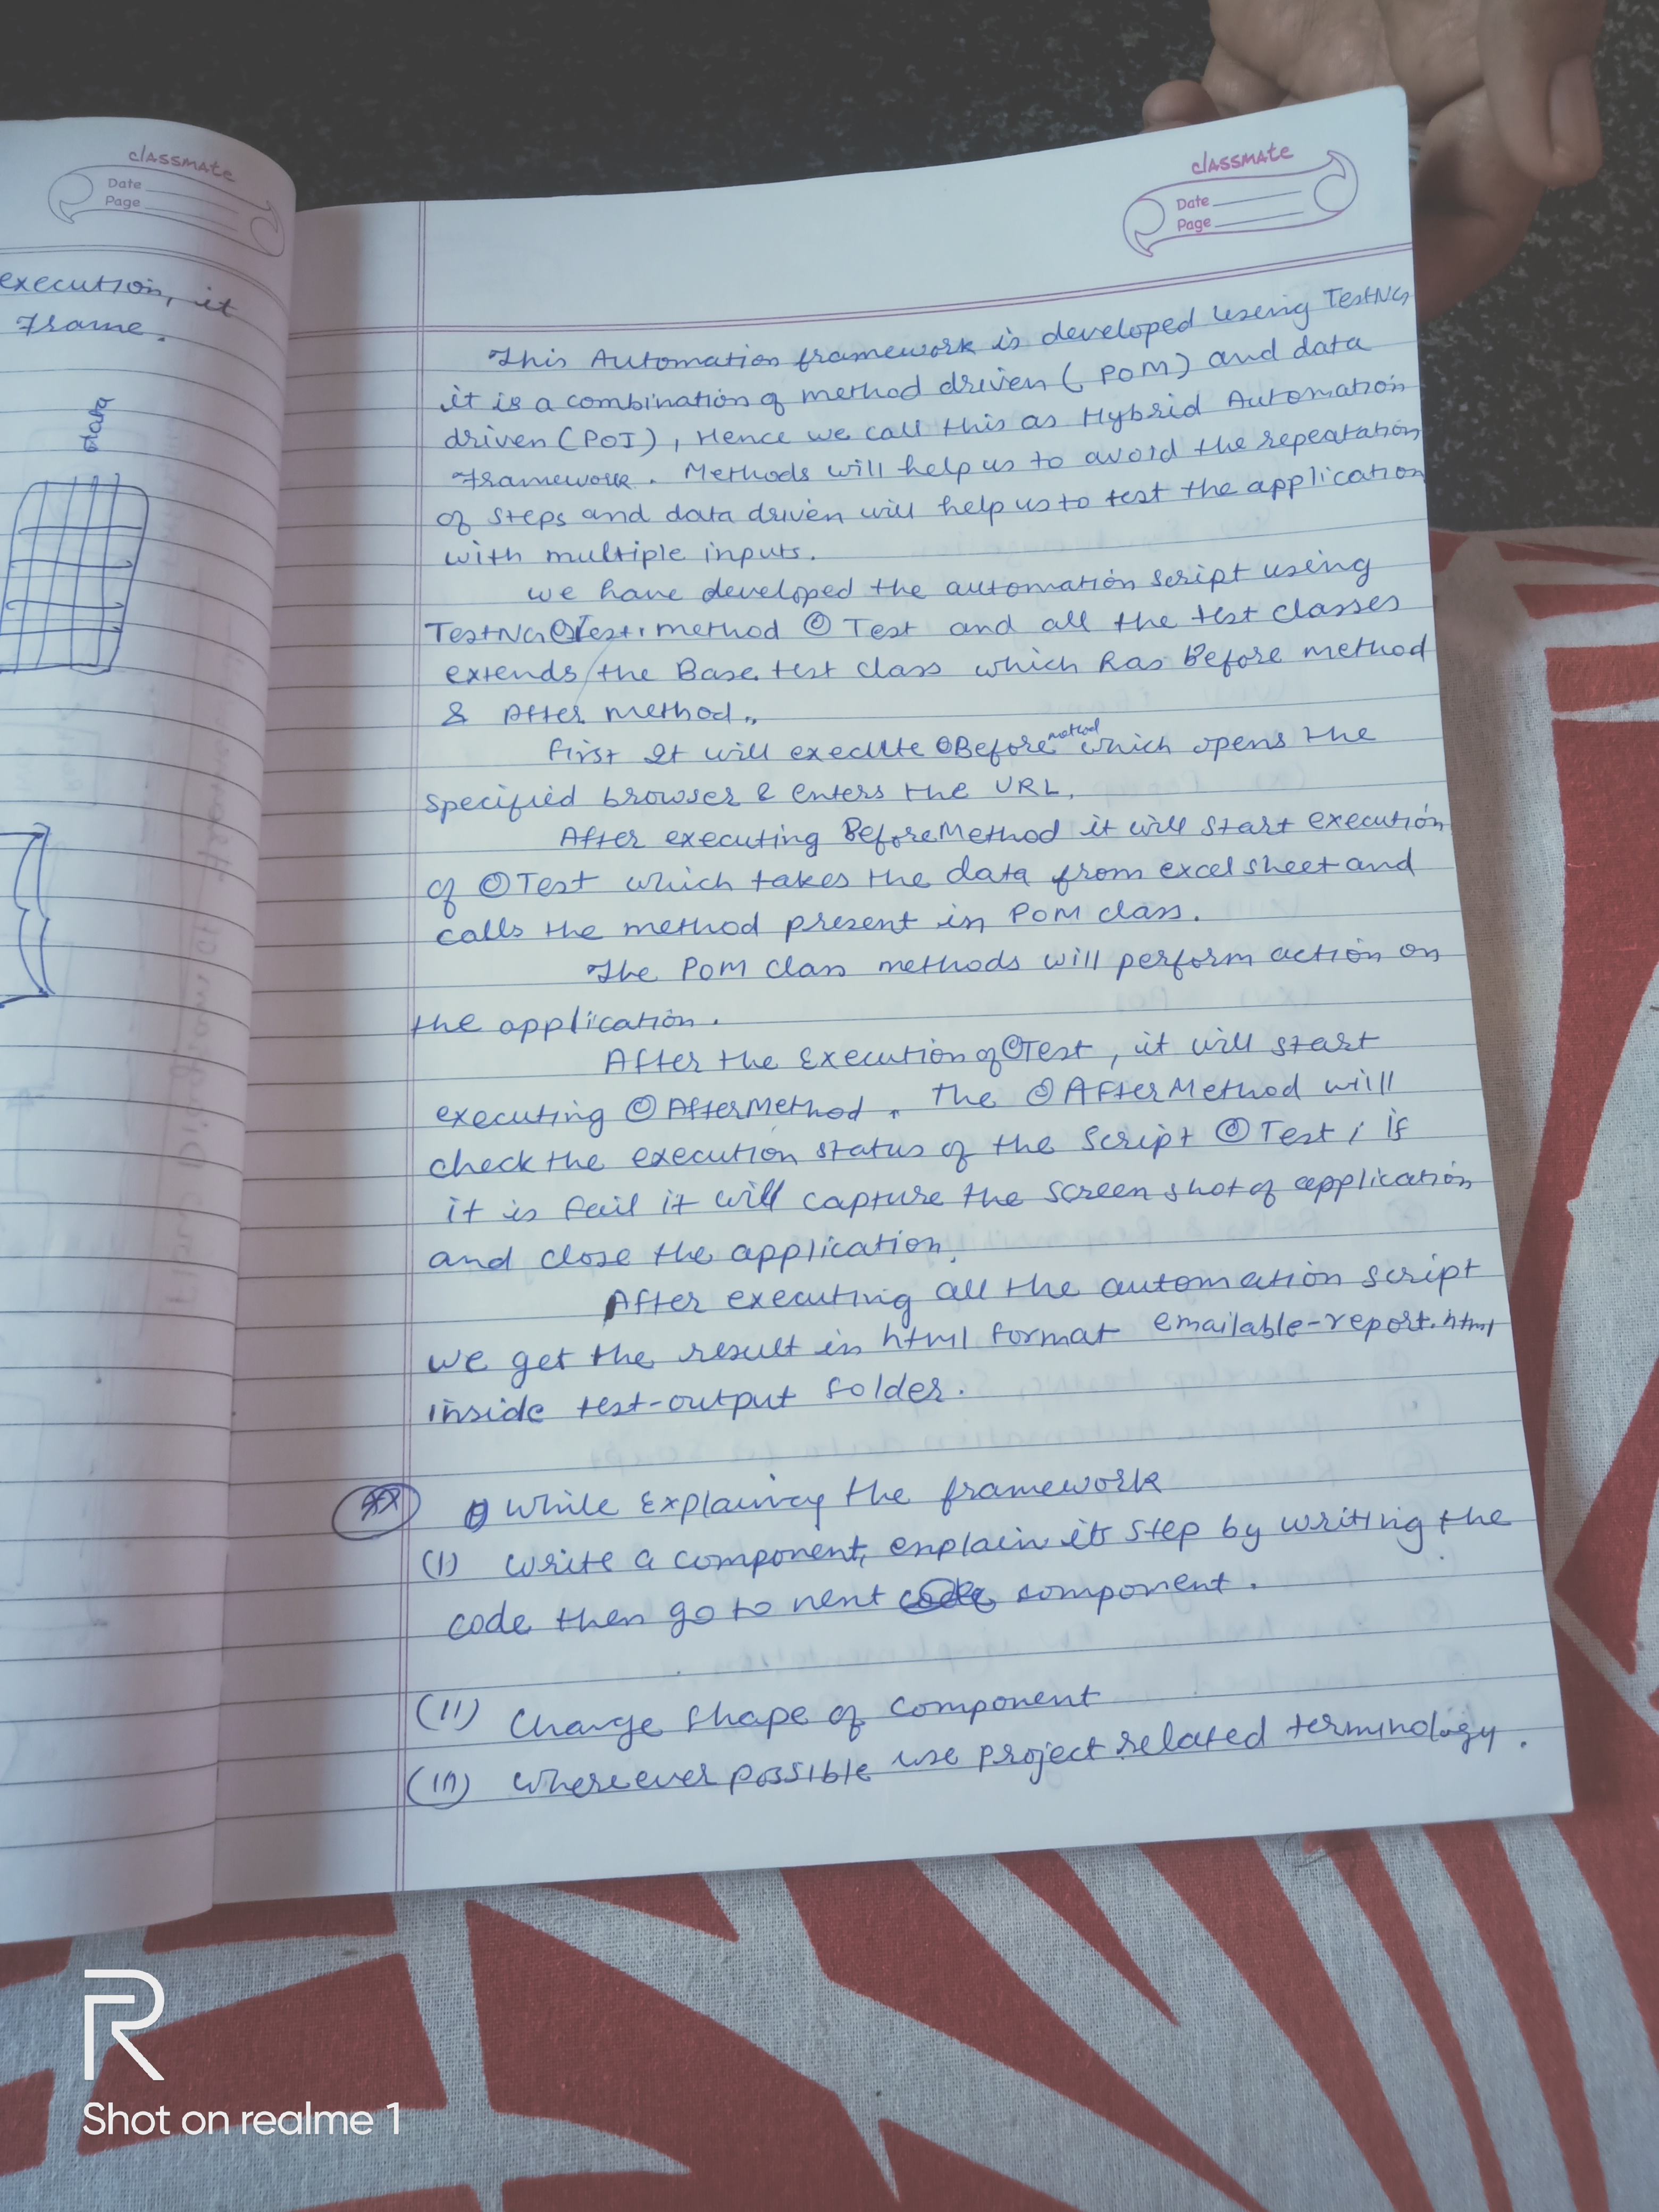 classmate
Date
Page
execution, it
Frame.
data
classmate
Date
Page
This Automation framework is developed using TestNG
it is a combination of method driven (POM) and data
driven (POI), Hence we call this as Hybrid Automation
Framework. Methods will help us to avoid the repeatation
of steps and data driven will help us to test the application
with multiple inputs.
we have developed the automation script using
TestNG @Test, method @ Test and all the test classes
extends the Base test class which has Before method
& After method.
First It will execute @Before method which opens the
specified browser & enters the URL.
After executing BeforeMethod it will start execution
of @Test which takes the data from excel sheet and
calls the method present in POM class.
The POM class methods will perform action on
the application.
After the Execution of @Test, it will start
executing @ AfterMethod. The @ AfterMethod will
check the execution status of the script @ Test, if
it is fail it will capture the screen shot of application
and close the application.
After executing all the automation script
we get the result in html format emailable-report.html
inside test-output folder.
** While Explaincy the framework
(I) write a component, explain its step by writing the
code then go to nent component.
(II) Change shape of component
(III) whereever possible use project related terminology.
R
Shot on realme 1